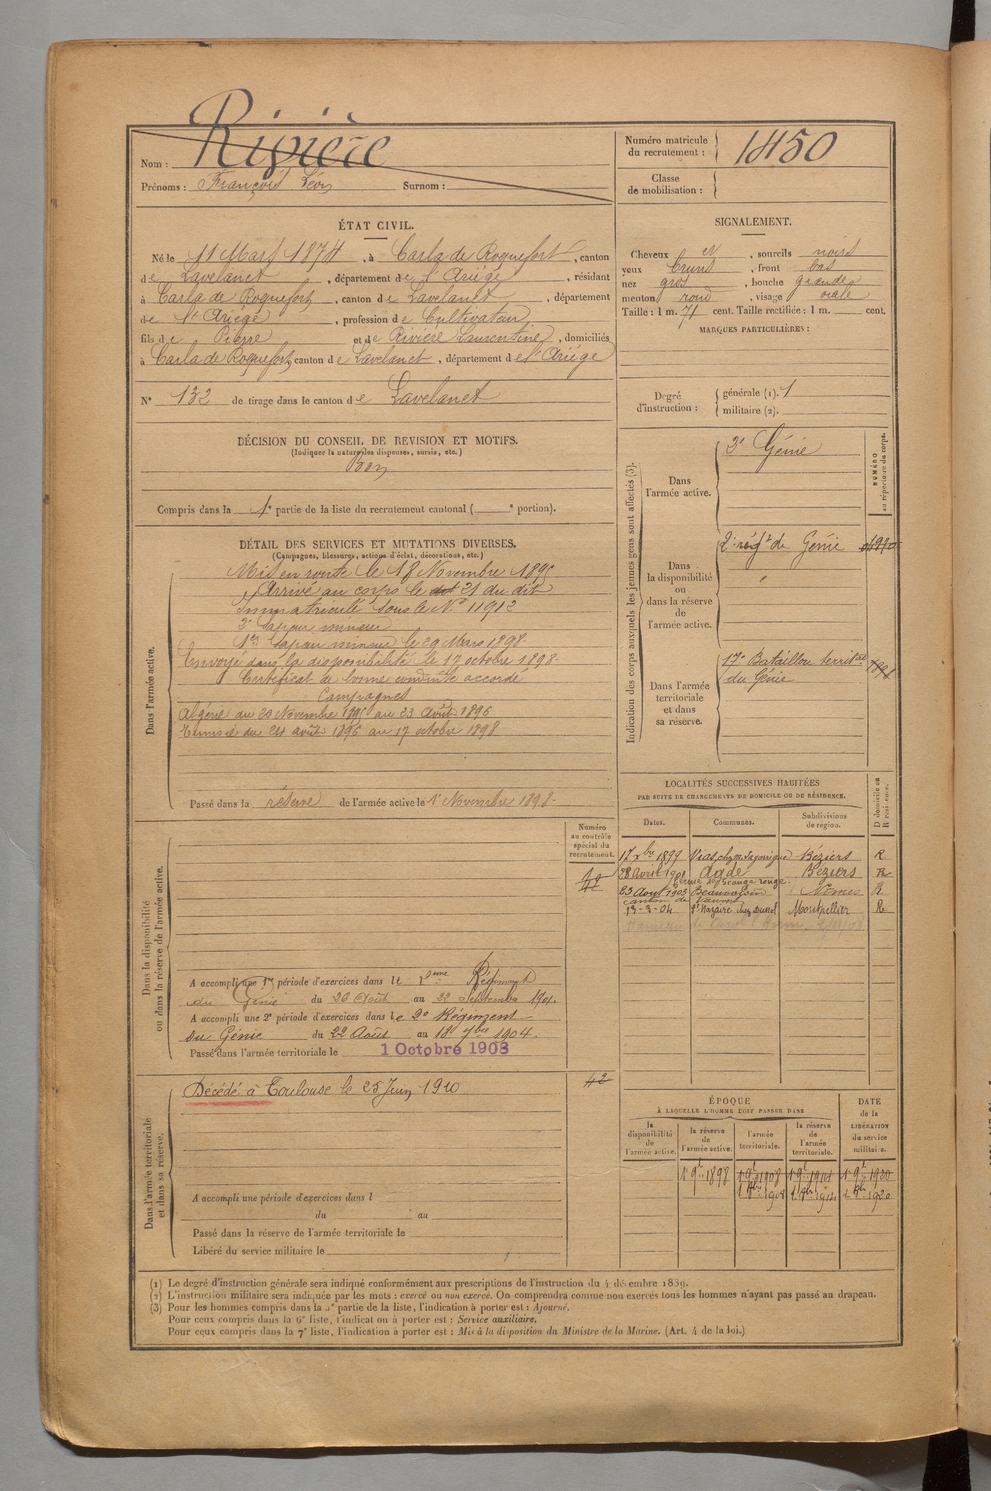 Nom : Rivière
Prénoms : François Léon Surnom :
Numéro matricule du recrutement : 1450
Classe de mobilisation :
ÉTAT CIVIL.
Né le 11 Mars 1874, à Carla de Roquefort, canton
de Lavelanet, département de l'Ariège, résidant
à Carla de Roquefort, canton de Lavelanet, département
de l'Ariège, profession de Cultivateur
fils de Pierre et de Rivière Laurentine, domiciliés
à Carla de Roquefort, canton de Lavelanet, département de l'Ariège
N° 132 de tirage dans le canton de Lavelanet
DÉCISION DU CONSEIL DE REVISION ET MOTIFS.
(Indiquer la nature des dispenses, sursis, etc.)
Bon
Compris dans la 1e partie de la liste du recrutement cantonal ( e portion).
SIGNALEMENT.
Cheveux N, sourcils noirs
yeux bruns, front bas
nez gros, bouche grande
menton rond, visage ovale
Taille : 1 m. 71 cent. Taille rectifiée : 1 m. cent.
MARQUES PARTICULIÈRES :
Degré d'instruction : générale (1). 1
militaire (2).
DÉTAIL DES SERVICES ET MUTATIONS DIVERSES.
(Campagnes, blessures, actions d'éclat, décorations, etc.)
Dans l'armée active.
Mis en route le 18 Novembre 1895
Arrivé au corps le 21 du dit
Immatriculé sous le N° 11912
2e Sapeur mineur
1er Sapeur mineur le 29 Mars 1898
Envoyé dans la disponibilité le 17 octobre 1898
Certificat de bonne conduite accordé
Campagnes
Algérie du 20 Novembre 1895 au 23 Août 1896
Tunisie du 24 août 1896 au 17 octobre 1898
Passé dans la réserve de l'armée active le 1er Novembre 1898
Indication des corps auxquels les jeunes gens sont affectés (3).
NUMÉRO au répertoire du corps.
Dans l'armée active.
2e Génie
Dans la disponibilité ou dans la réserve de l'armée active.
2e régt de Génie
Dans l'armée territoriale et dans sa réserve.
17e Bataillon territal
du Génie
LOCALITÉS SUCCESSIVES HABITÉES
PAR SUITE DE CHANGEMENTS DE DOMICILE OU DE RÉSIDENCE.
Dates. Communes. Subdivisions de région. D domicile ou R résidence.
17 xbre 1899 Vias Béziers R
28 Avril 1901 Agde Béziers R
grange rouge
23 Aout 1903 Beauvoisin Nîmes R
canton de Vauvert
13-3-04 St Nazaire Montpellier R
Dans la disponibilité ou dans la réserve de l'armée active.
Numéro au contrôle spécial du recrutement.
42
A accompli une 1re période d'exercices dans le 2ème Régiment
du Génie du 26 Août au 22 Septembre 1901.
A accompli une 2e période d'exercices dans le 2e Régiment
du Génie du 22 Août au 18 7bre 1904.
Passé dans l'armée territoriale le 1 Octobre 1908
Dans l'armée territoriale et dans sa réserve.
Décédé à Toulouse le 25 Juin 1910
42
A accompli une période d'exercices dans l
du au
Passé dans la réserve de l'armée territoriale le
Libéré du service militaire le
ÉPOQUE
À LAQUELLE L'HOMME DOIT PASSER DANS
DATE de la LIBÉRATION du service militaire.
la disponibilité de l'armée active. la réserve de l'armée active. l'armée territoriale. la réserve de l'armée territoriale.
1898 1908 1914 1920
1908 1914 1920
(1) Le degré d'instruction générale sera indiqué conformément aux prescriptions de l'instruction du 4 décembre 1889.
(2) L'instruction militaire sera indiquée par les mots : exercé ou non exercé. On comprendra comme non exercés tous les hommes n'ayant pas passé au drapeau.
(3) Pour les hommes compris dans la 5e partie de la liste, l'indication à porter est : Ajourné.
Pour ceux compris dans la 6e liste, l'indication à porter est : Service auxiliaire.
Pour ceux compris dans la 7e liste, l'indication à porter est : Mis à la disposition du Ministre de la Marine. (Art. 4 de la loi.)